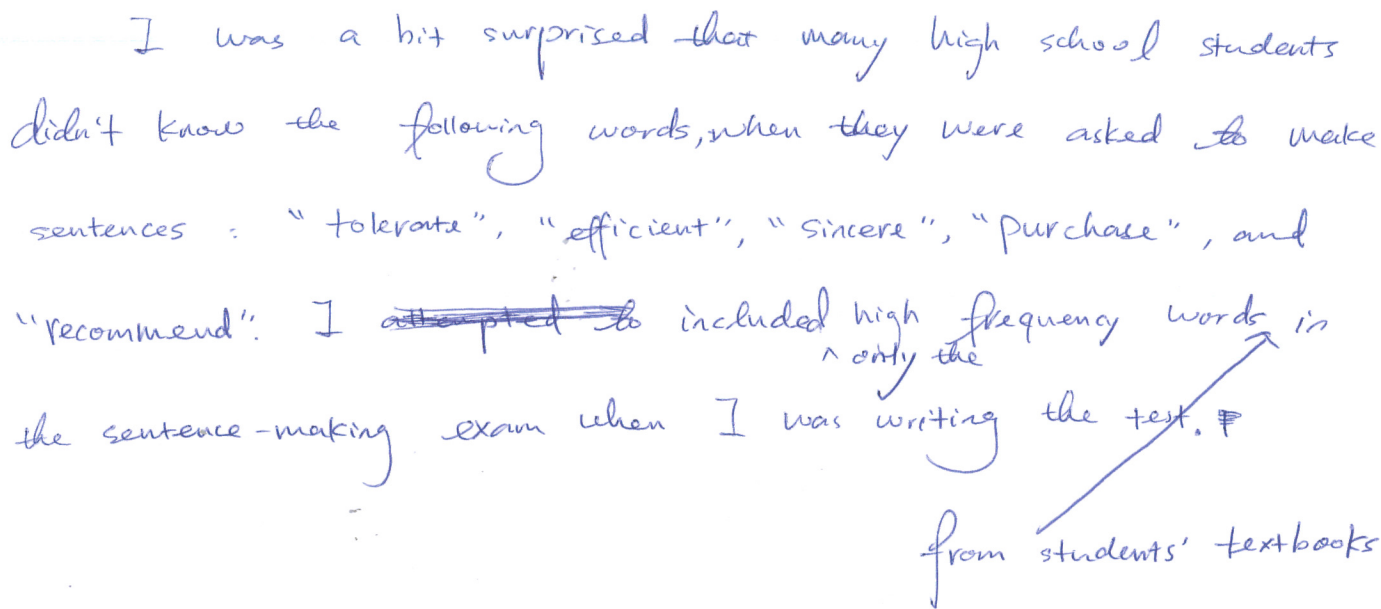 I was a bit surprised that many high school students
didn't know the following words, when they were asked to make
sentences : "tolerate", "efficient", "sincere", "purchase", and
"recommend". I attempted to included high frequency words in
^ only the
the sentence-making exam when I was writing the test.
from students' textbooks